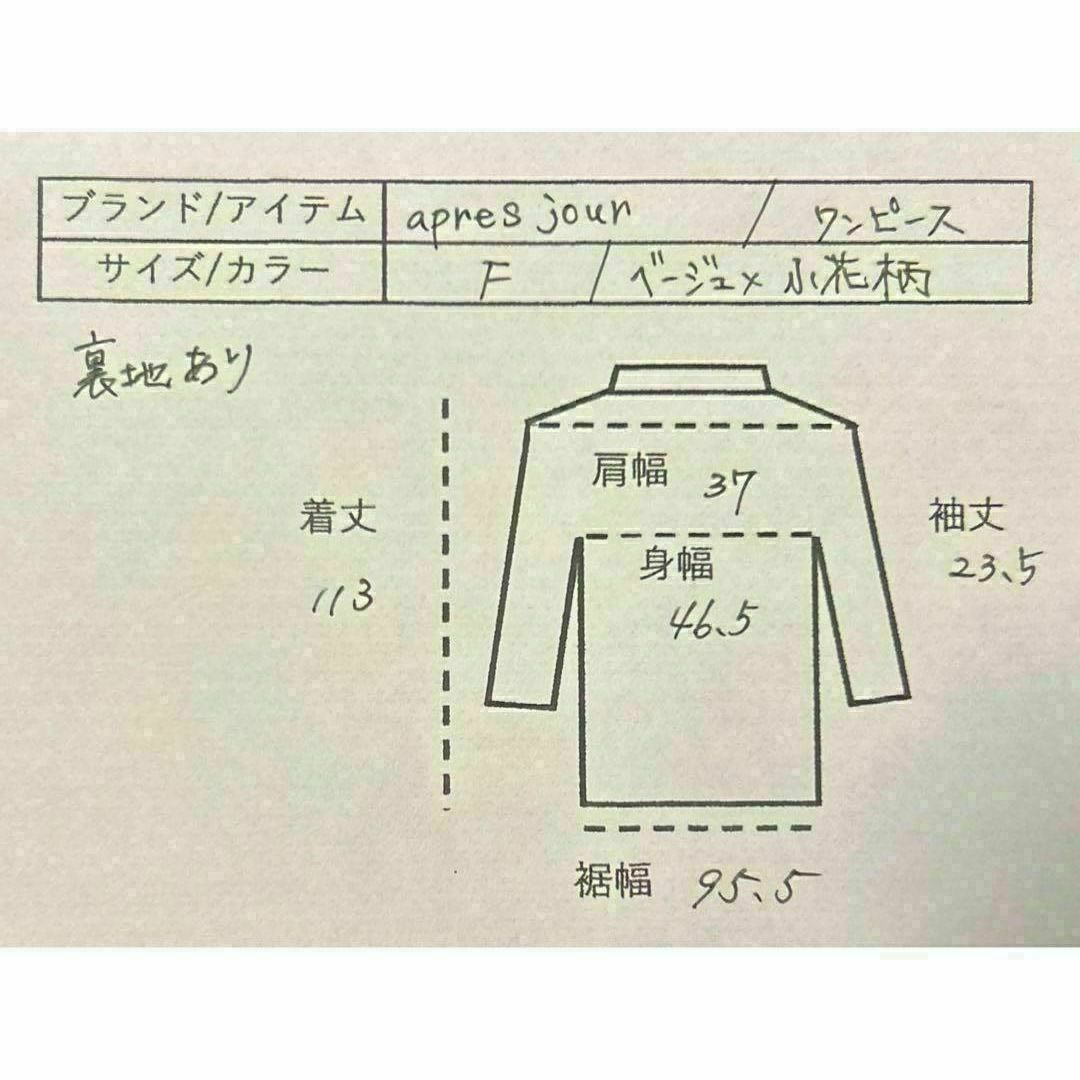 ブランド/アイテム apres jour / ワンピース
サイズ/カラー F / ベージュ×小花柄
裏地あり
肩幅 37
着丈
113
袖丈
23.5
身幅
46.5
裾幅 95.5